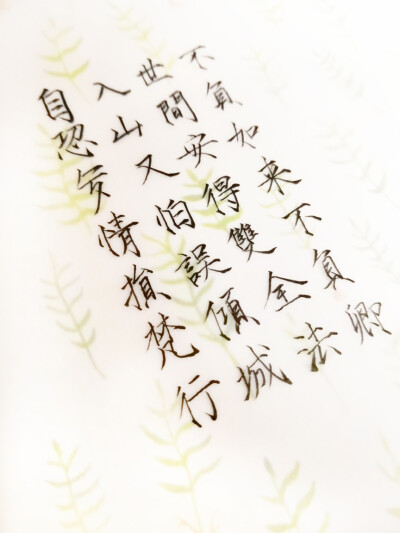 自恐多情損梵行
入山又怕誤傾城
世間安得雙全法
不負如来不負卿